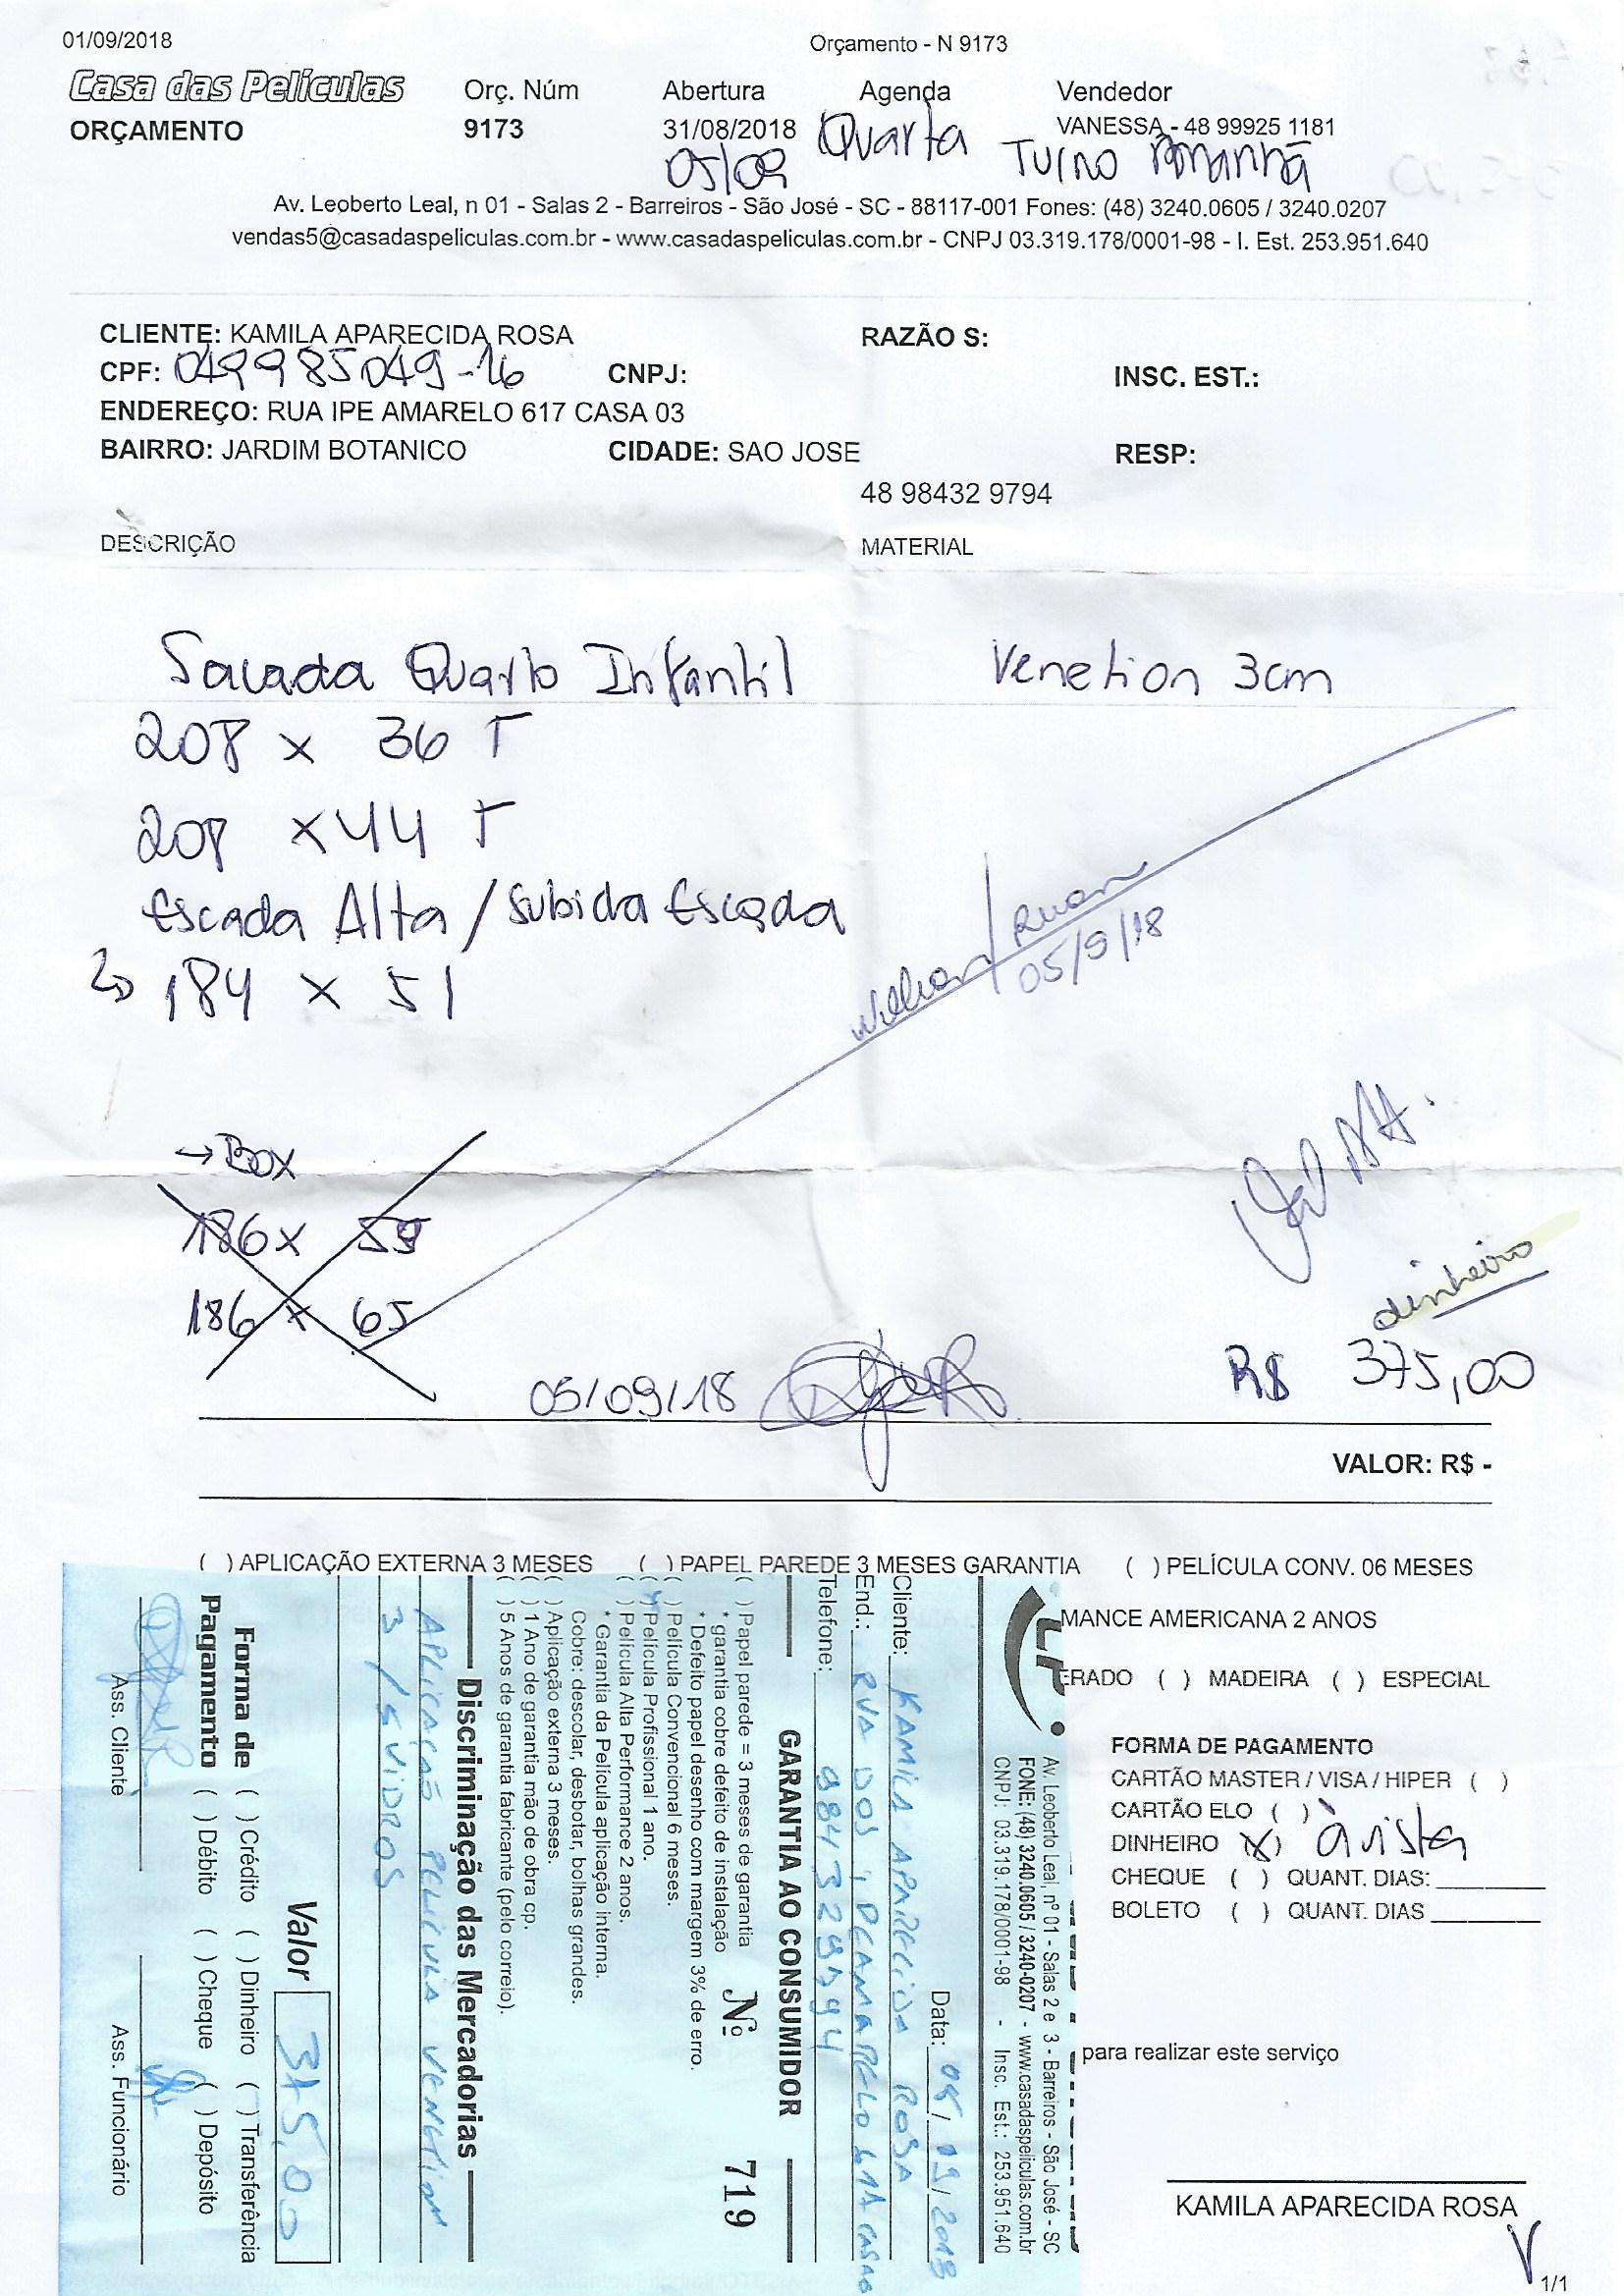 01/09/2018 Orçamento - N 9173
Casa das Películas Orç. Núm Abertura Agenda Vendedor
ORÇAMENTO 9173 31/08/2018 VANESSA - 48 99925 1181
05/09 Quarta Turno Amanhã
Av. Leoberto Leal, n 01 - Salas 2 - Barreiros - São José - SC - 88117-001 Fones: (48) 3240.0605 / 3240.0207
vendas5@casadaspeliculas.com.br - www.casadaspeliculas.com.br - CNPJ 03.319.178/0001-98 - I. Est. 253.951.640
CLIENTE: KAMILA APARECIDA ROSA RAZÃO S:
CPF: 049985049-16 CNPJ: INSC. EST.:
ENDEREÇO: RUA IPE AMARELO 617 CASA 03
BAIRRO: JARDIM BOTANICO CIDADE: SAO JOSE RESP:
48 98432 9794
DESCRIÇÃO MATERIAL
Sacada Quarto Infantil Venetion 3cm
208 x 36 T
208 x 44 T
Escada Alta / Subida Escada
184 x 51
Ruan
05/9/18
→ Box
186 x 59
186 x 65
dinheiro
05/09/18 R$ 375,00
VALOR: R$ -
( ) APLICAÇÃO EXTERNA 3 MESES ( ) PAPEL PAREDE 3 MESES GARANTIA ( ) PELÍCULA CONV. 06 MESES
MANCE AMERICANA 2 ANOS
ERADO ( ) MADEIRA ( ) ESPECIAL
FORMA DE PAGAMENTO
CARTÃO MASTER / VISA / HIPER ( )
CARTÃO ELO ( )
DINHEIRO (X) à vista
CHEQUE ( ) QUANT. DIAS:
BOLETO ( ) QUANT. DIAS
para realizar este serviço
KAMILA APARECIDA ROSA
1/1
Av. Leoberto Leal, nº 01 - Salas 2 e 3 - Barreiros - São José - SC
FONE: (48) 3240.0605 / 3240-0207 - www.casadaspeliculas.com.br
CNPJ: 03.319.178/0001-98 - Insc. Est.: 253.951.640
Data: 05/09/2018
Cliente: KAMILA APARECIDA ROSA
End.: RUA DOS
Telefone: 984329794
GARANTIA AO CONSUMIDOR
Nº 719
( ) Papel parede = 3 meses de garantia
* garantia cobre defeito de instalação
* Defeito papel desenho com margem 3% de erro.
( ) Película Convencional 6 meses.
(x) Película Profissional 1 ano.
( ) Película Alta Performance 2 anos.
* Garantia da Película aplicação interna.
Cobre: descolar, desbotar, bolhas grandes.
( ) Aplicação externa 3 meses.
( ) 1 Ano de garantia mão de obra cp.
( ) 5 Anos de garantia fabricante (pelo correio).
Discriminação das Mercadorias
APLICAÇÃO PELICULA VENETIAN
VIDROS
Valor 375,00
Forma de Pagamento ( ) Crédito ( ) Dinheiro ( ) Transferência
( ) Débito ( ) Cheque ( ) Depósito
Ass. Cliente Ass. Funcionário